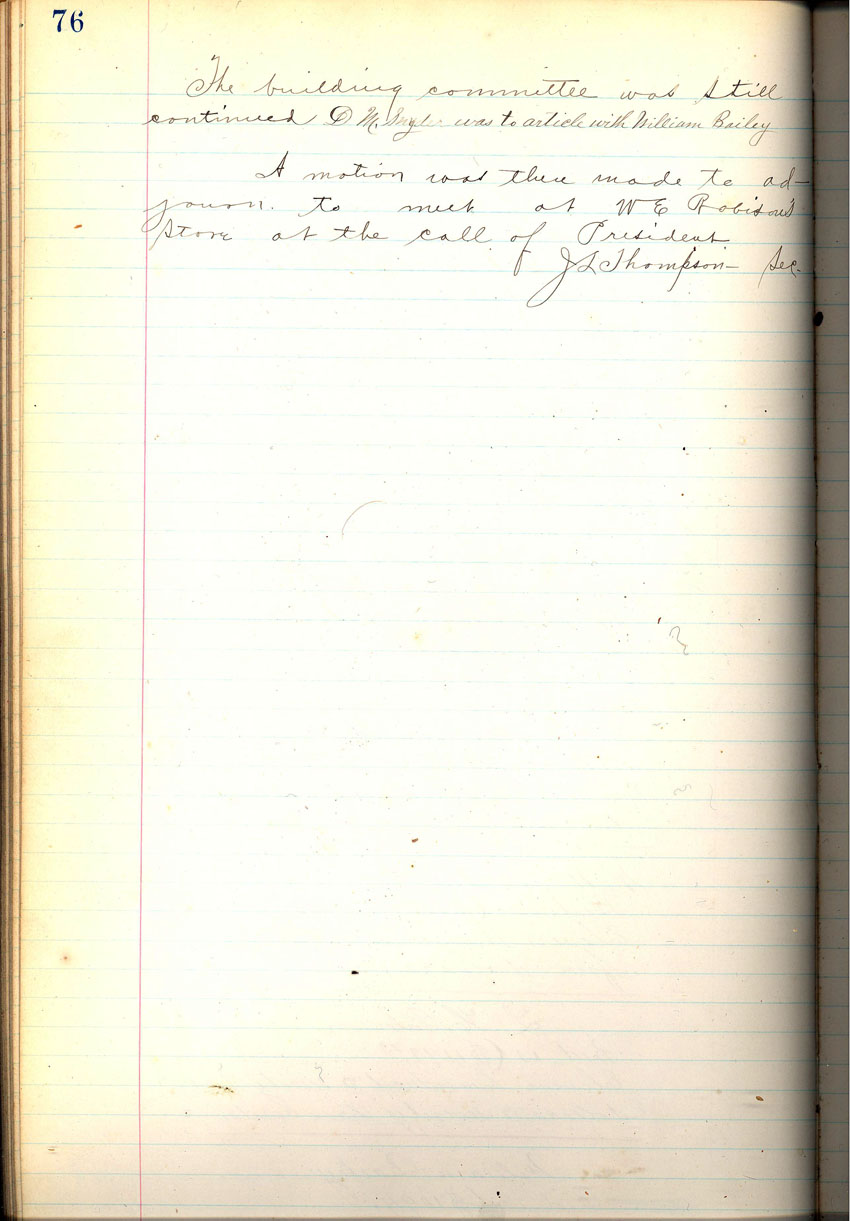 76
The building committee was still
continued D M. Snyder was to article with William Bailey
A motion was then made to ad-
journ. to meet at W E Robison's
store at the call of President
J L Thompson - Sec.